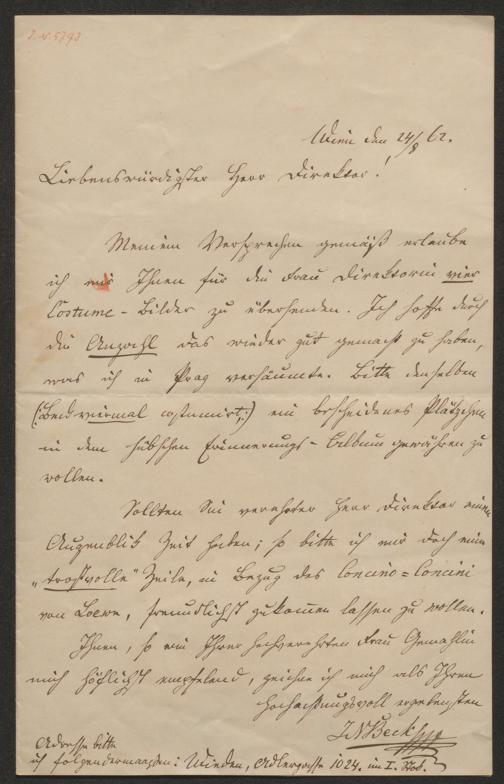 I. N. 5793
Wien den 24/8 62.
Liebenswürdigster Herr Direktor!
Meinem Versprechen gemäß erlaube
ich mir Ihnen für die Frau Direktorin vier
Costume-Bilder zu übersenden. Ich hoffe durch
die Anzahl das wieder gut gemacht zu haben,
was ich in Prag versäumte. Bitte denselben
(:Beck viermal costumirt:) ein bescheidenes Plätzchen
in dem hübschen Erinnerungs-Album gewähren zu
wollen.
Sollten Sie verehrter Herr Direktor einen
Augenblick Zeit haben; so bitte ich mir doch eine
„trostvolle" Zeile, in Bezug des Concino=Concini
von Loewe, freundlichst zukommen lassen zu wollen.
Ihnen, so wie Ihrer hochverehrten Frau Gemahlin
mich höflichst empfelend, zeichne ich mich als Ihren
hochachtungsvoll ergebensten
JNBeck
Adresse bitte
ich folgendermaassen: Wieden, Adlergasse 1024. im I. Stock.